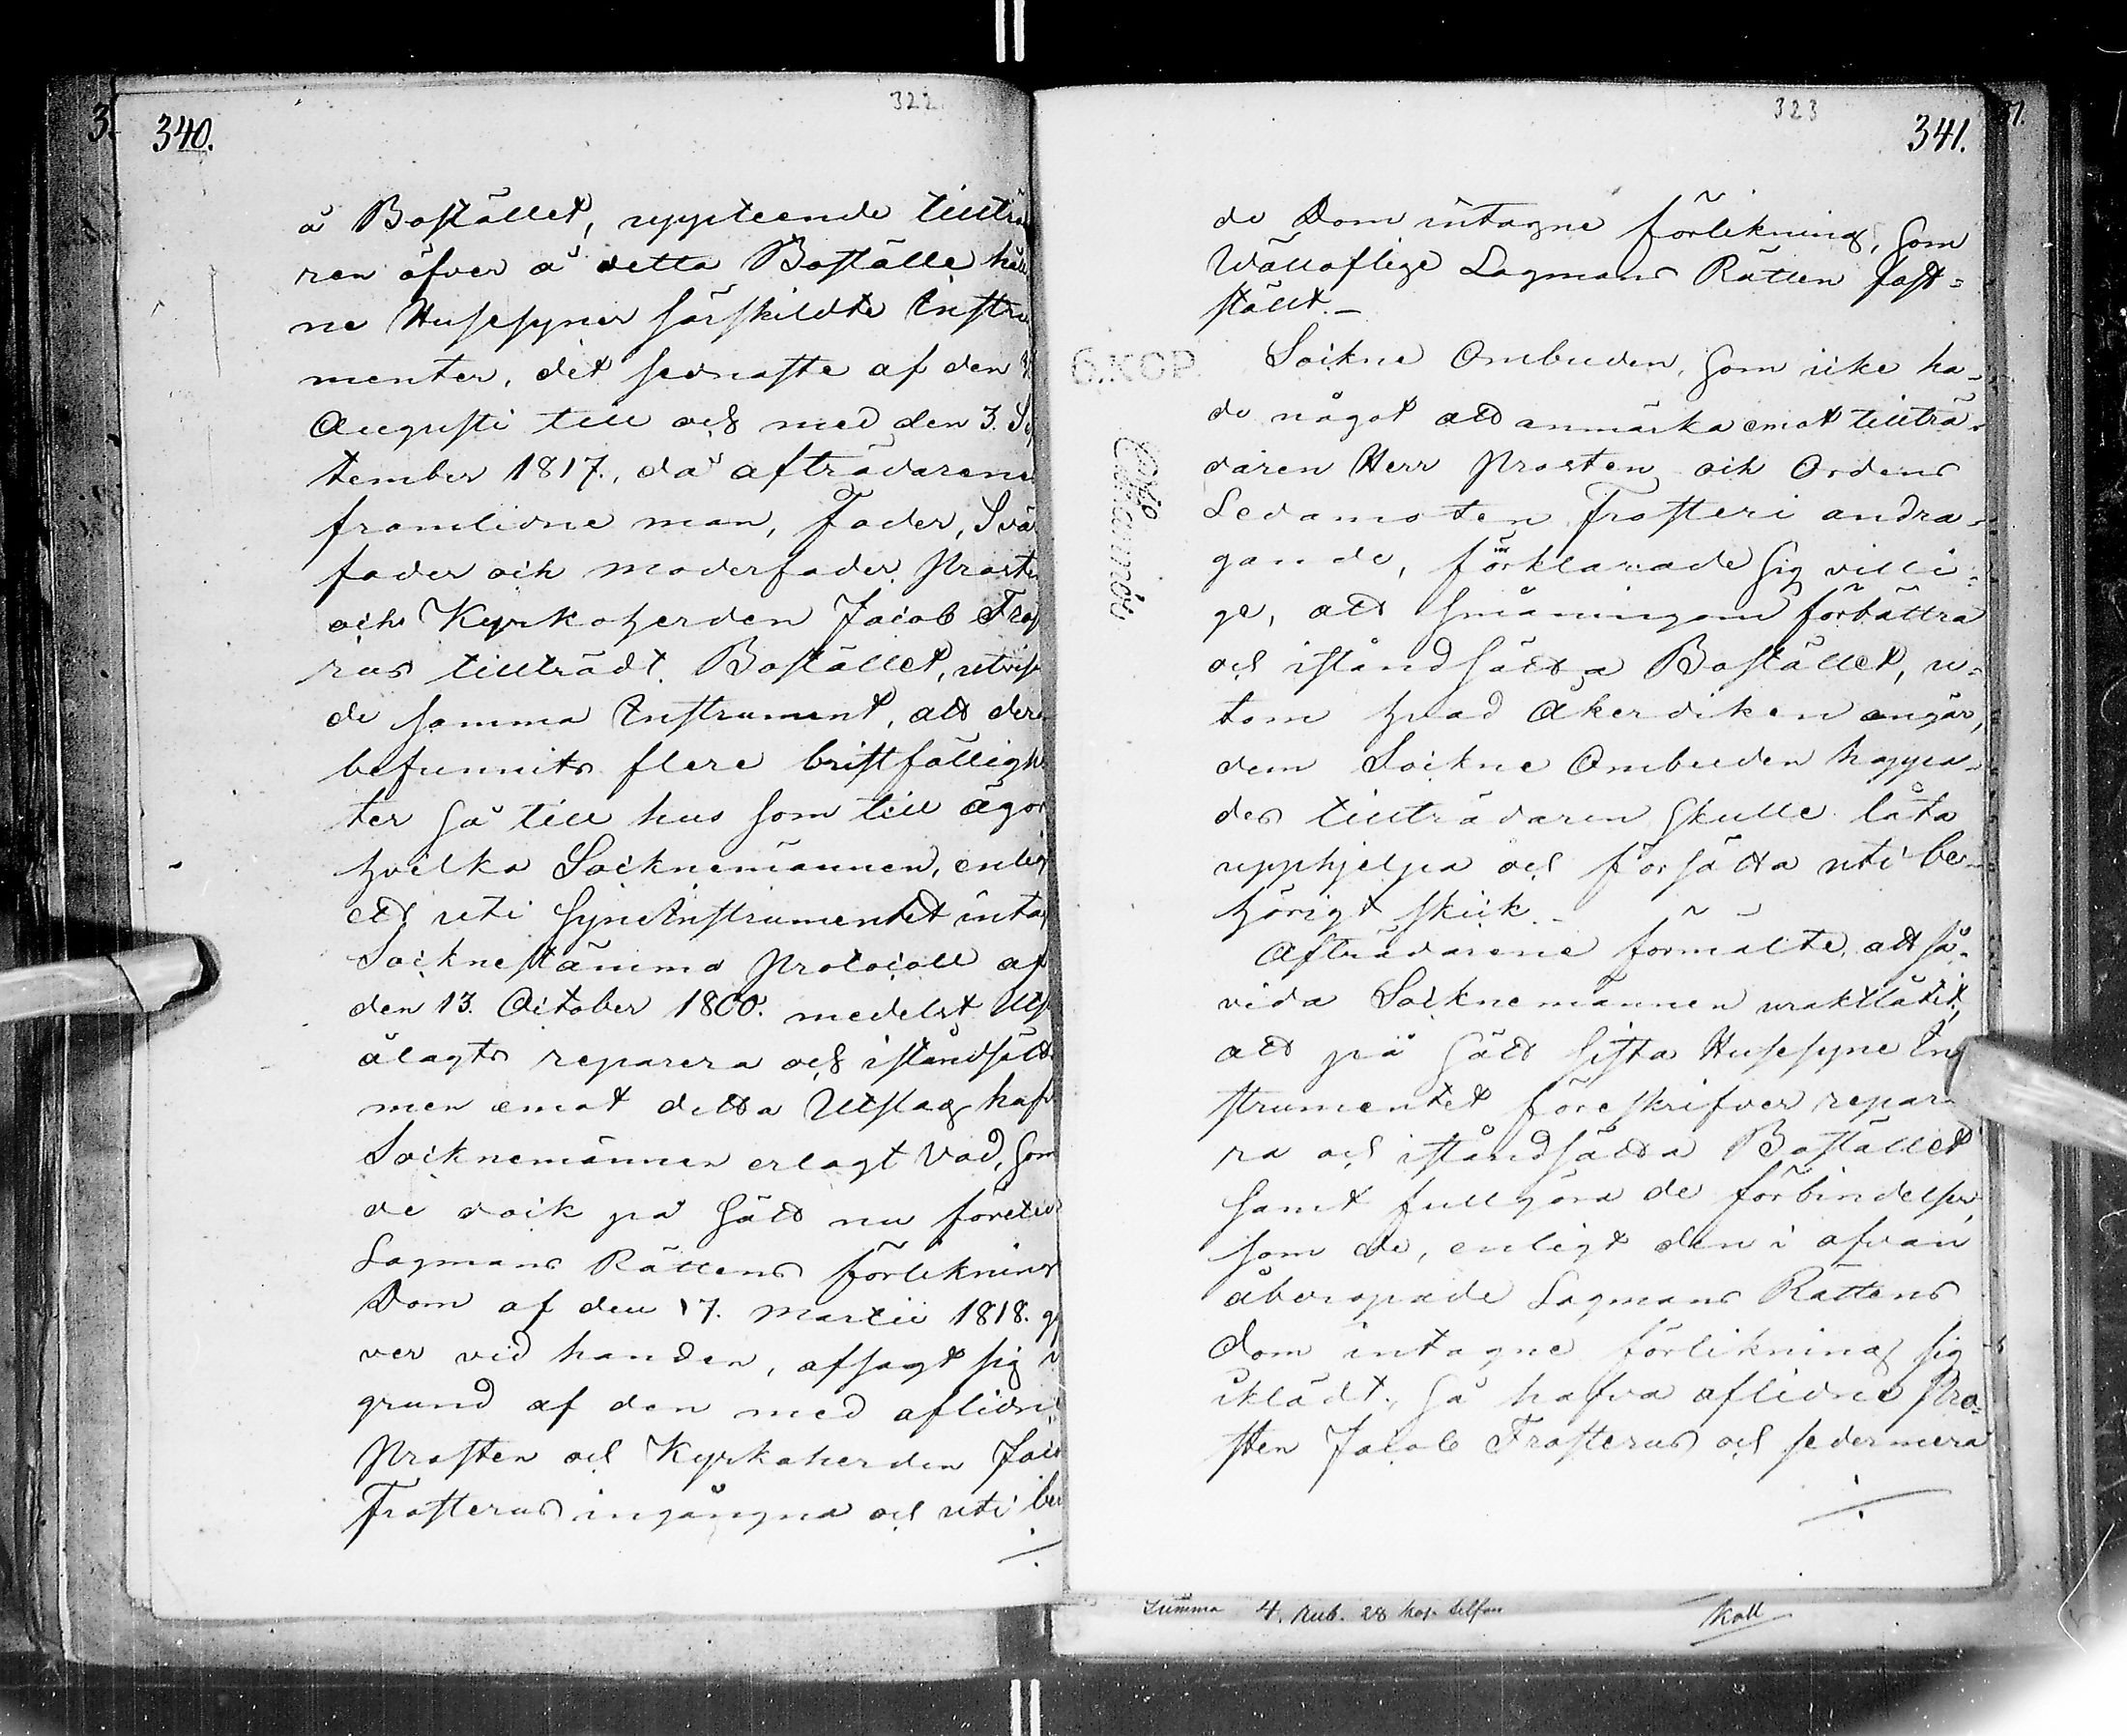 322
340.
å Boställlet, uppteende tillträ
ren öfver å detta Boställe håll
ne Husesyner särskildte Instru
menter, det sednaste af den
Augusti till och med den 3. Se
tember 1817., då afträdarene
framlidne man, Fader, Svä
fader och moderfader, Proste
och Kyrkoherden Jacob Fros
rus tillträdt. Bostället, utvisa
de samma Instrument, att der
befunnits flere bristfälligh
ter så till hus som till ägor
hvilka Socknemännen, enlig
ett uti Syne Instrumentet intag
Socknestämmo Protocoll af
den 13. October 1800. medelst Uts
ålagts reparera och iståndsätta
men emot detta Utslag hafv
Socknemännen erlagt Vad, som
de dock på sätt nu företed
Lagmans Rättens förliknings
Dom af den 17. Martii 1818. gif
ver vid handen, afsagt sig i
grund af den med aflidne
Prosten och Kyrkoherden Jaco
Frosterus ingångna och uti ber
323
341.
de Dom intagne förlikning, som
Wälloflige Lagmans Rätten fast-
stält.-
Sockne Ombuden, som icke ha-
de något att anmärka emot tillträ-
daren Herr Prosten och Ordens
Ledamoten Frosteri andra-
gande, förklarade sig villi-
ge, att småningom förbättra
och iståndsätta Bostället, u-
tom hvad Åkerdiken angår,
dem Sockne Ombuden hoppa-
des tillträdaren skulle låta
upphjelpa och försätta uti be-
hörigt skick.-
Afträdarene formälte, att så-
vida Socknemännen uraktlåtit,
att på sätt sista Husesyne In
strumentet föreskrifver repare
ra och iståndsätta Bostället
samt fullgöra de förbindelser,
som de, enligt den i ofvan
åberopade Lagmans Rättens
Dom intagne förlikning sig
iklädt, så hafva aflidne Pro-
sten Jacob Frosterus och sedermera
6.KOP.
Summa 4. Rub. 28 kop. silfver
Koll